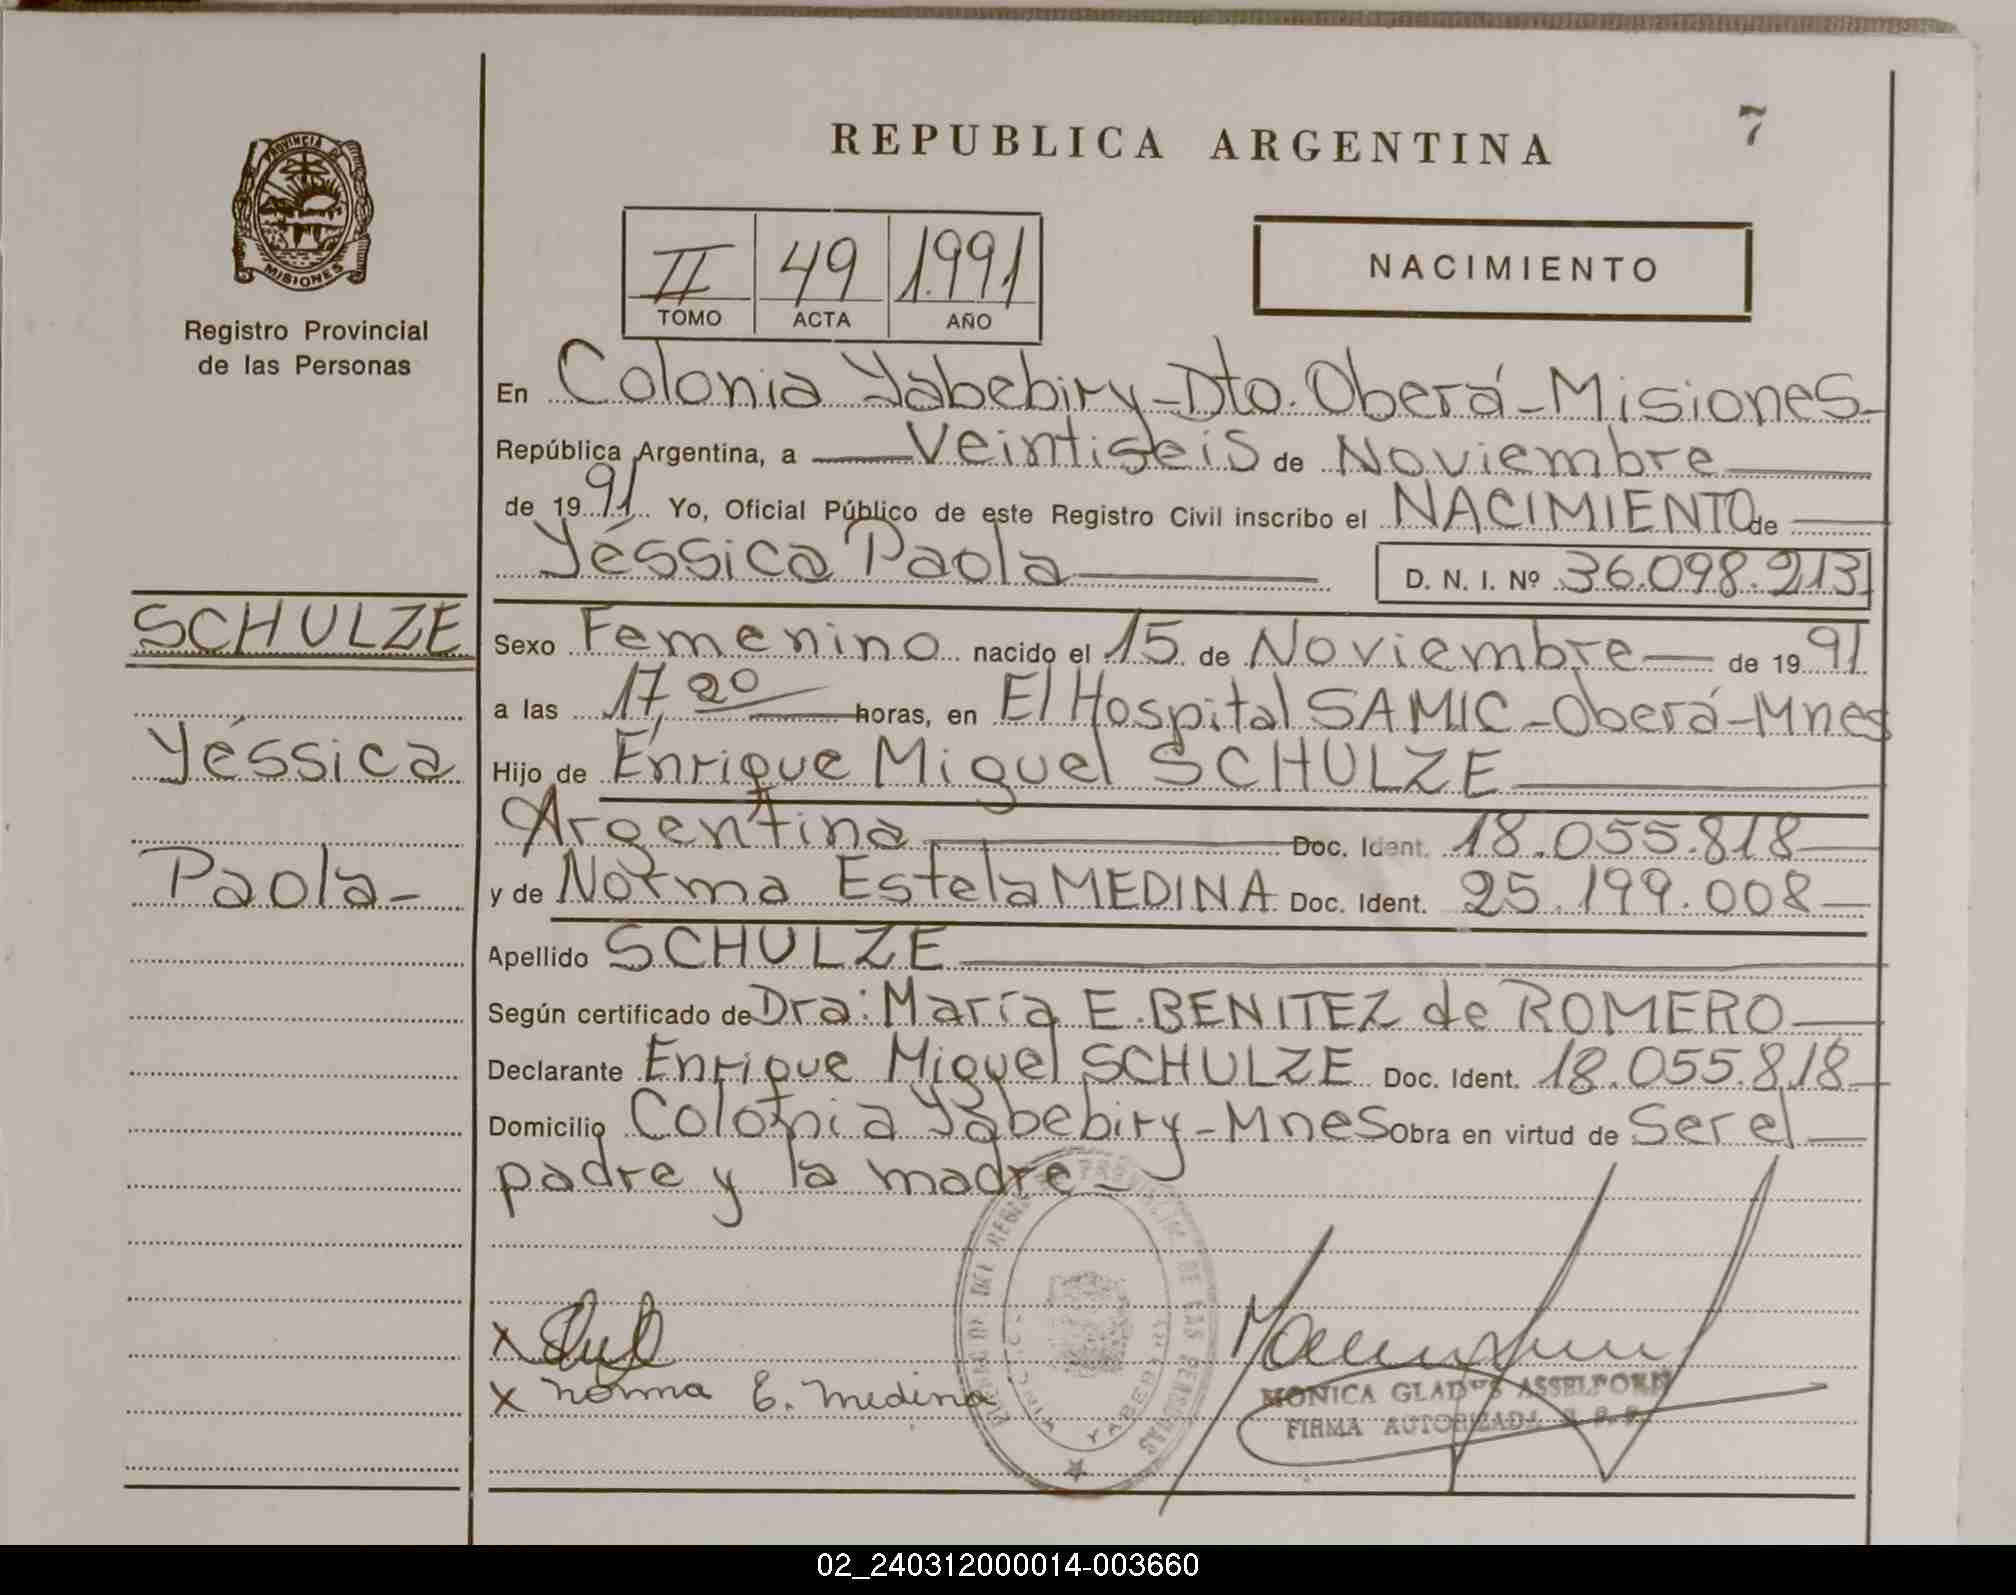 7
REPUBLICA ARGENTINA
PROVINCIA DE
MISIONES
Registro Provincial
de las Personas
II 49 1.991
TOMO ACTA AÑO
NACIMIENTO
En Colonia Yabebiry-Dto. Oberá-Misiones-
República Argentina, a Veintiseis de Noviembre
de 1991 Yo, Oficial Público de este Registro Civil inscribo el NACIMIENTO de
Yéssica Paola D. N. I. Nº 36.098.213
SCHULZE
Yéssica
Paola-
Sexo Femenino nacido el 15 de Noviembre de 1991
a las 17,20 horas, en El Hospital SAMIC-Oberá-Mnes
Hijo de Enrique Miguel SCHULZE
Argentina Doc. Ident. 18.055.818
y de Norma Estela MEDINA Doc. Ident. 25.199.008
Apellido SCHULZE
Según certificado de Dra: María E. BENITEZ de ROMERO
Declarante Enrique Miguel SCHULZE Doc. Ident. 18.055.818
Domicilio Colonia Yabebiry-Mnes Obra en virtud de Ser el
padre y la madre-
x
x Norma E. Medina
DEL PROVINCIA DE LAS PERSONAS
YABEBIRY
MONICA GLADYS
FIRMA AUTORIZADA
02_240312000014-003660